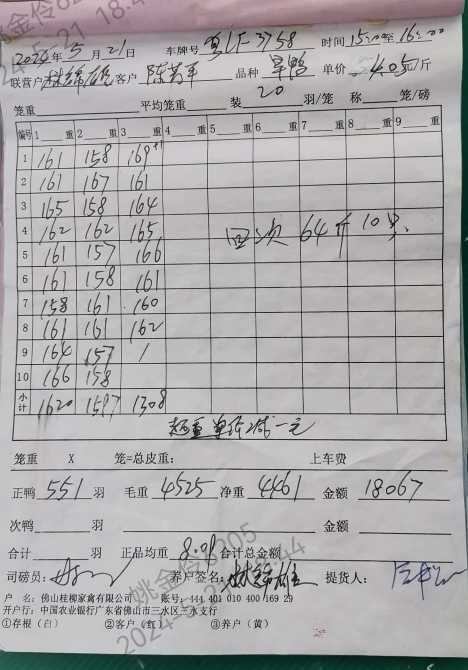 2024年5月21日 车牌号 粤LF3758 时间 15:00至16:00
联营户 林锦雄 客户 陈芳平 品种 旱鸭 单价 4.05元/斤
笼重 平均笼重 装 20 羽/笼 称 笼/磅
编号 1 重 2 重 3 重 4 重 5 重 6 重 7 重 8 重 9 重
1 161 158 169
2 161 167 161
3 165 158 164
4 162 162 165 回次 64斤10只
5 161 157 166
6 161 158 161
7 158 161 160
8 161 161 162
9 164 157 /
10 166 158
小计 1620 1597 1308
超重单价减一元
笼重 X 笼=总皮重: 上车费
正鸭 551 羽 毛重 4525 净重 4461 金额 18067
次鸭 羽 金额
合计 羽 正品均重 8.09 合计总金额
司磅员: 养户签名: 林锦雄 提货人:
户 名: 佛山桂柳家禽有限公司 账号: 444 401 010 400 169 29
开户行: 中国农业银行广东省佛山市三水区三水支行
①存根(白) ②客户(红) ③养户(黄)